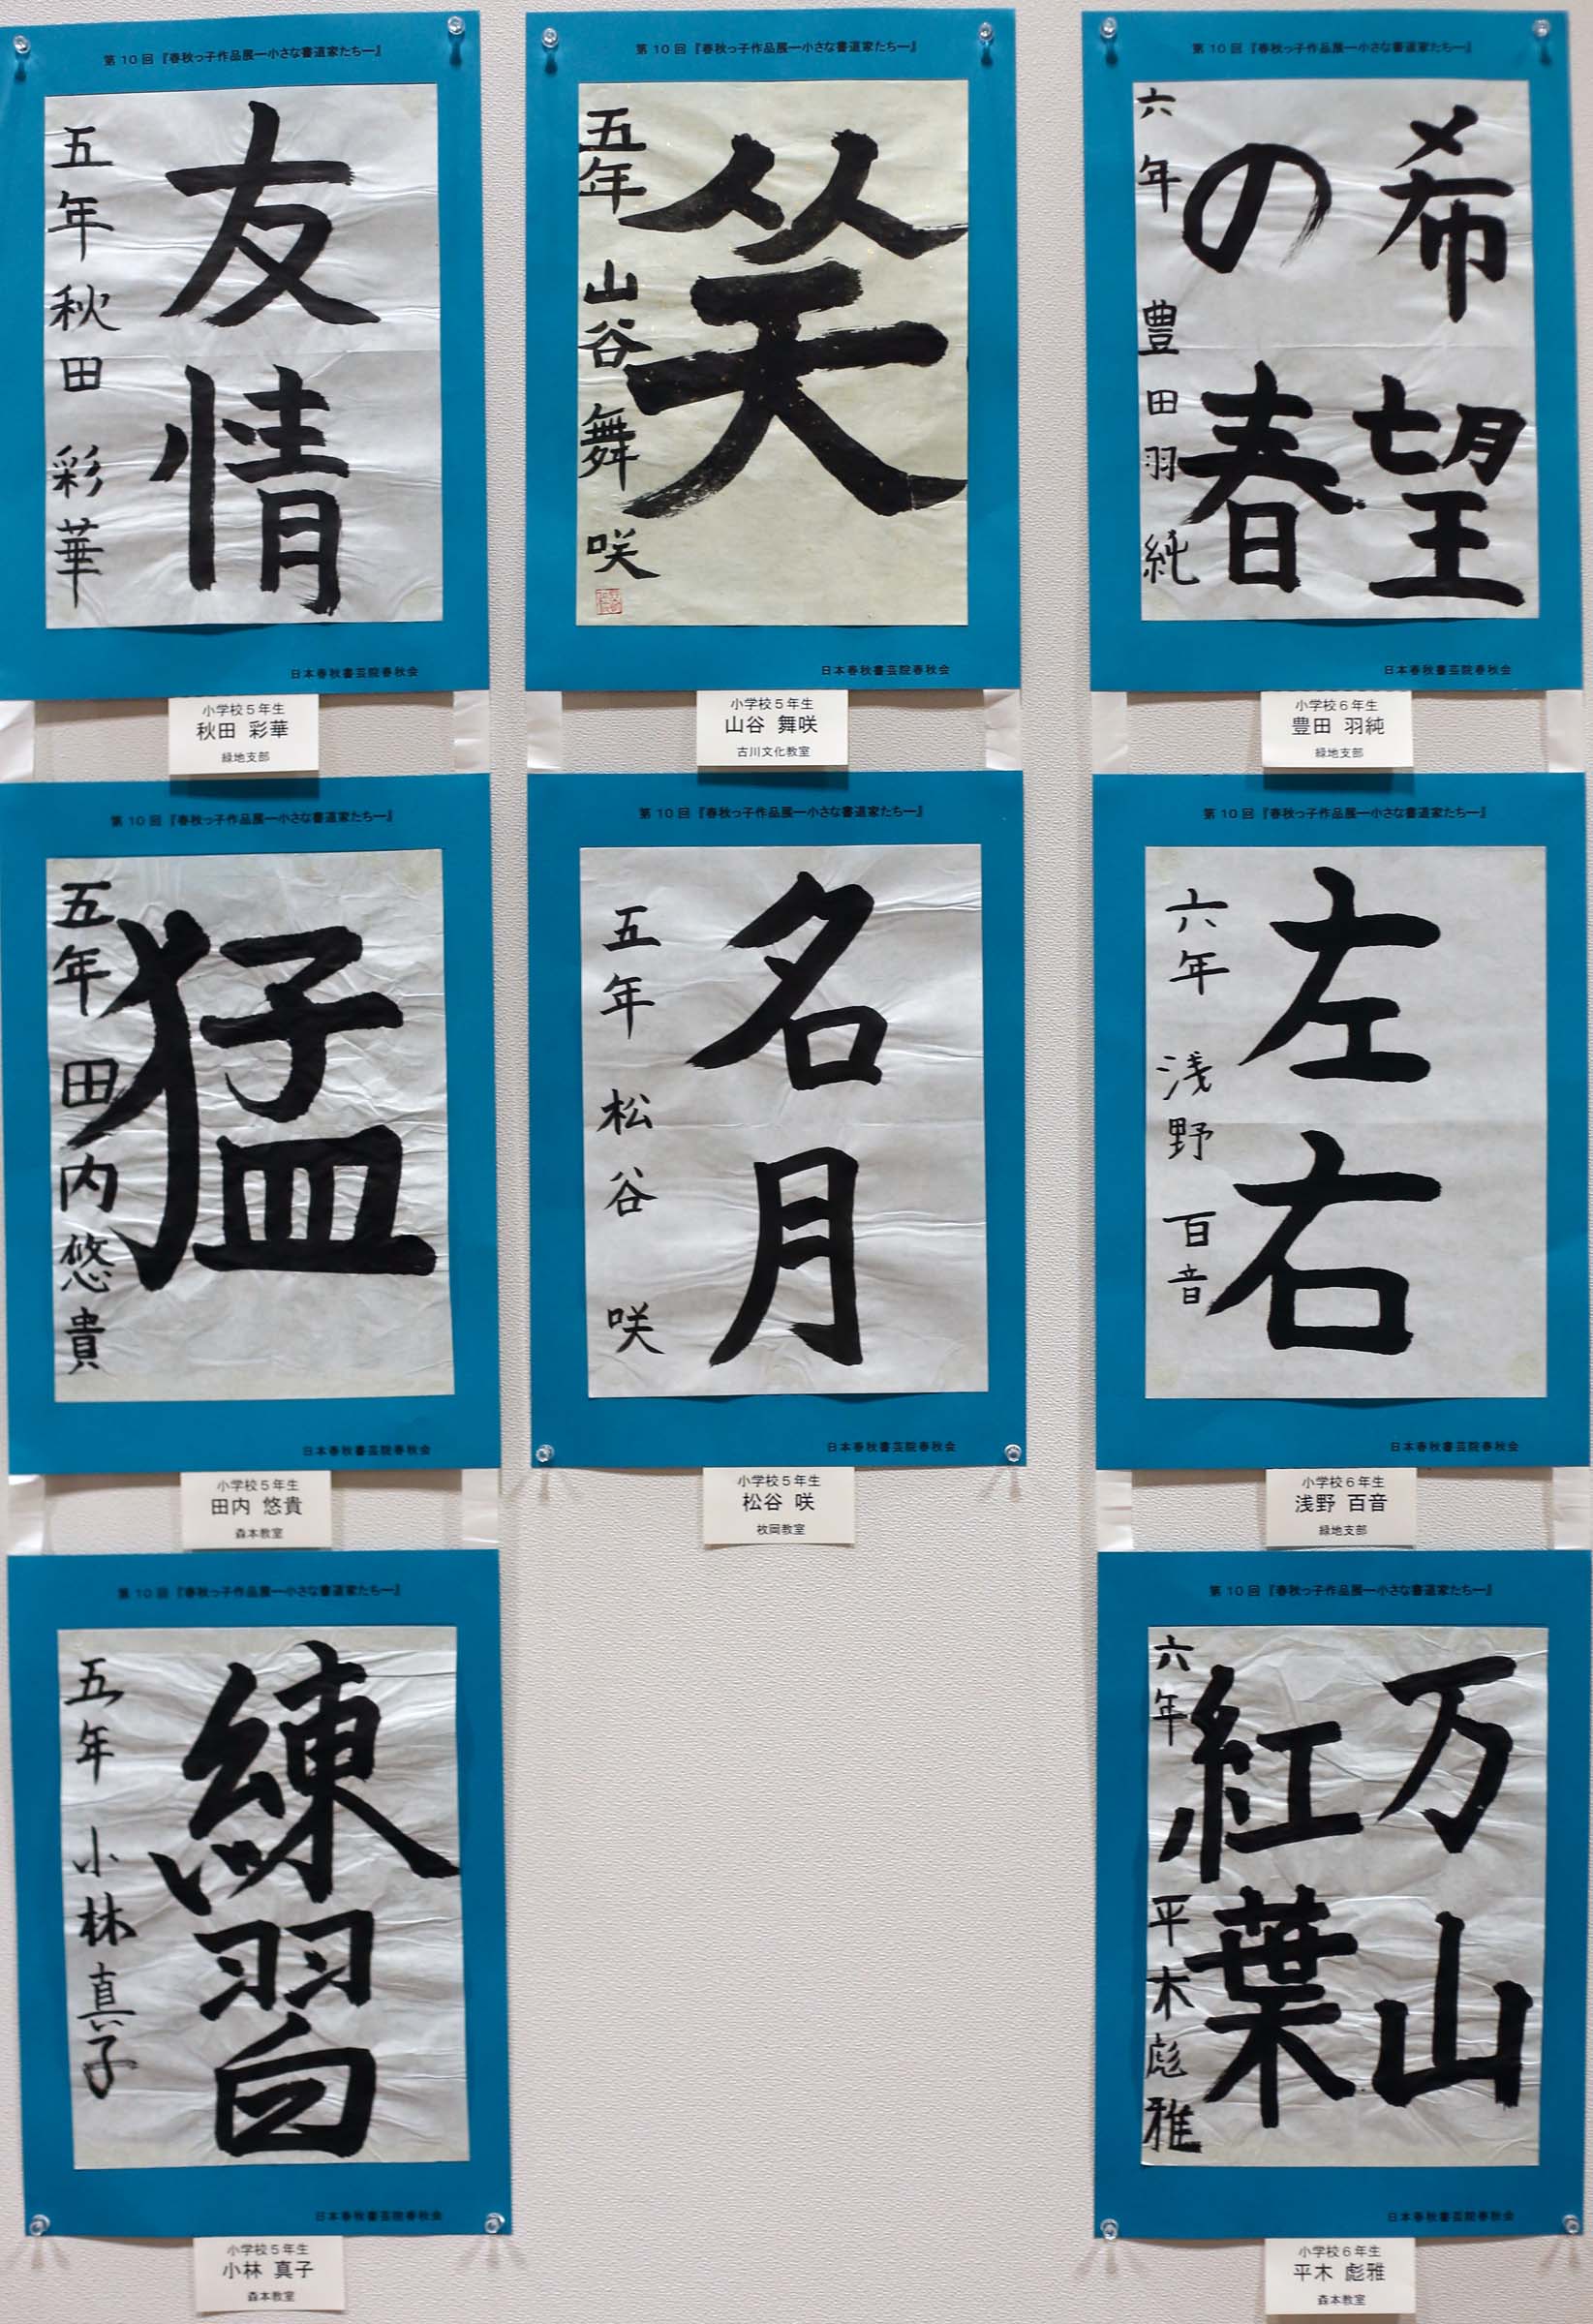 第10回『春秋っ子作品展―小さな書道家たち―』
友情
五年 秋田 彩華
日本春秋書芸院春秋会
小学校5年生
秋田 彩華
緑地支部
第10回『春秋っ子作品展―小さな書道家たち―』
笑
五年 山谷 舞咲
日本春秋書芸院春秋会
小学校5年生
山谷 舞咲
古川文化教室
第10回『春秋っ子作品展―小さな書道家たち―』
希望
の春
六年 豊田羽純
日本春秋書芸院春秋会
小学校6年生
豊田 羽純
緑地支部
第10回『春秋っ子作品展―小さな書道家たち―』
猛
五年 田内悠貴
日本春秋書芸院春秋会
小学校5年生
田内 悠貴
森本教室
第10回『春秋っ子作品展―小さな書道家たち―』
名月
五年 松谷 咲
日本春秋書芸院春秋会
小学校5年生
松谷 咲
枚岡教室
第10回『春秋っ子作品展―小さな書道家たち―』
左右
六年 浅野 百音
日本春秋書芸院春秋会
小学校6年生
浅野 百音
緑地支部
第10回『春秋っ子作品展―小さな書道家たち―』
練習
五年 小林真子
日本春秋書芸院春秋会
小学校5年生
小林 真子
森本教室
第10回『春秋っ子作品展―小さな書道家たち―』
万山
紅葉
六年 平木彪雅
日本春秋書芸院春秋会
小学校6年生
平木 彪雅
森本教室